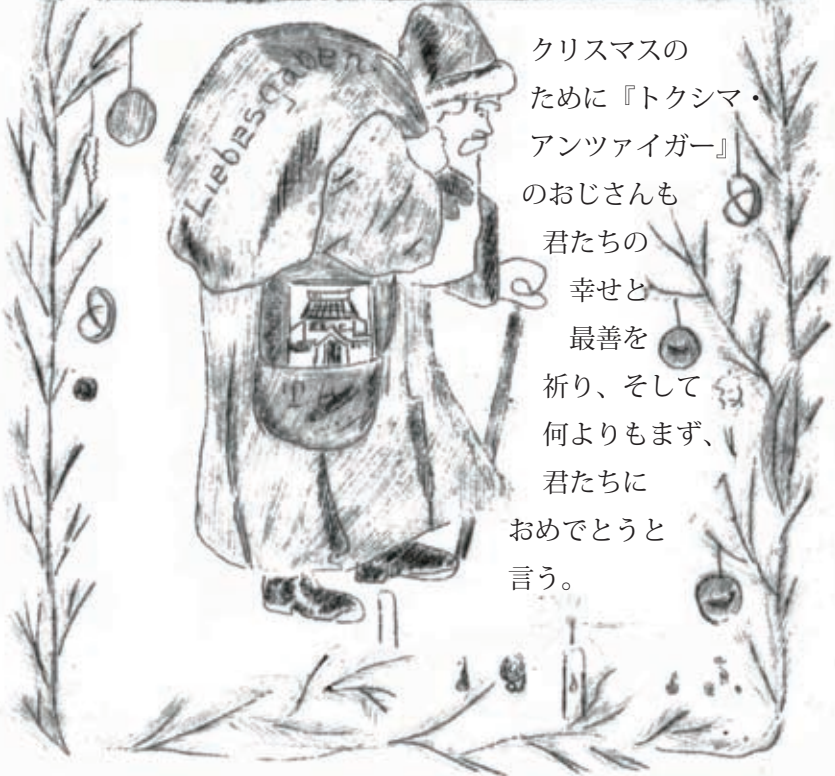 Liebesgaben.
クリスマスの
ために『トクシマ・
アンツァイガー』
のおじさんも
君たちの
幸せと
最善を
祈り、そして
何よりもまず、
君たちに
おめでとうと
言う。